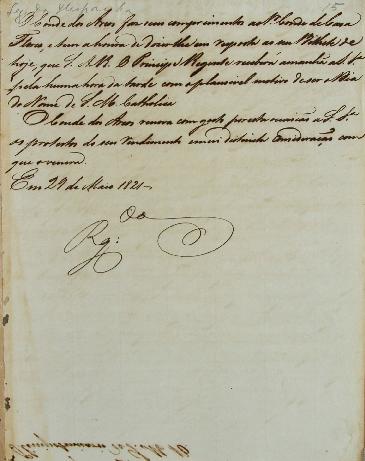 15
O Conde dos Arcos faz seus comprimentos ao Sr. Conde de Casa
Flores, e tem a honra de dizer-lhe em resposta ao seu Bilhete de
hoje, que S. A. R. O Principe Regente receberá amanhã a S. Sª
pela huma hora da tarde com o plausivel motivo de ser o Dia
do Nome de S. M. Catholica
O Conde dos Arcos renova com gosto por esta occasião a S. Sª
os protestos do seu rendimento e mui distincta consideração com
que o venera.
Em 29 de Maio 1821.
Rg: